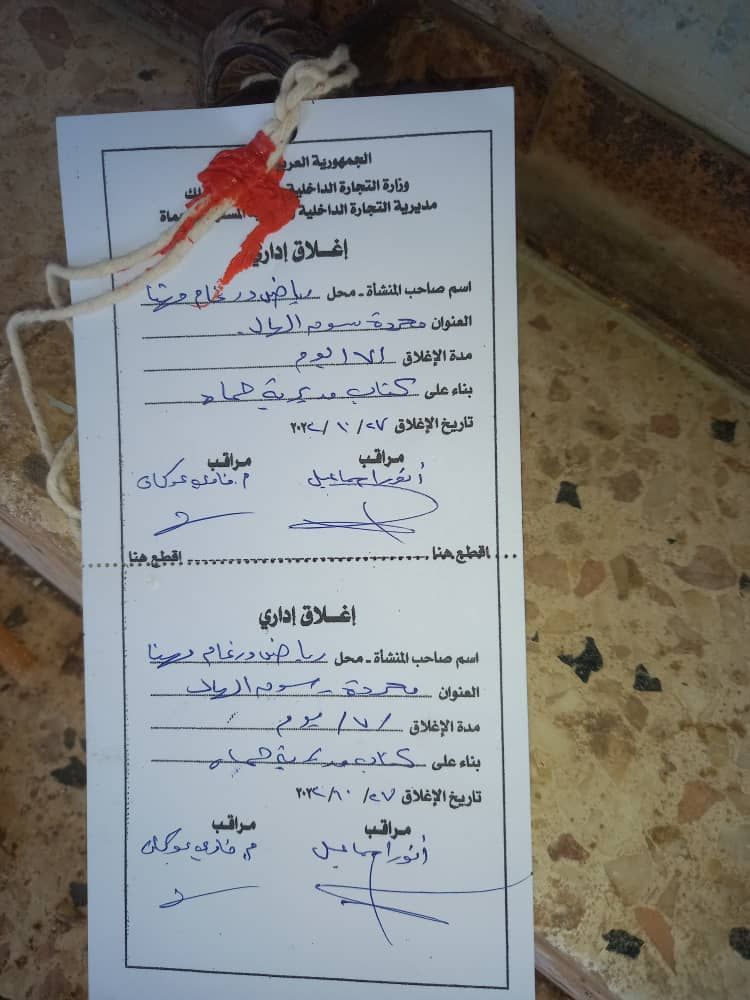 الجمهورية العربـ
وزارة التجارة الداخلية لك
مديرية التجارة الداخلية المسـ ـماة
إغـلاق إداري
اسم صاحب المنشأة ـ محل رياض ورغام مهنا
العنوان محردة سوق الهال
مدة الإغلاق /٧/ يوم
بناء على كتاب مديرية حماه
تاريخ الإغلاق ٢٧/ ١٠/ ٢٠٢٢
مراقب مراقب
أنور اسماعيل م. فادي
اقطع هنا اقطع هنا
إغـلاق إداري
اسم صاحب المنشأة ـ محل رياض ورغام مهنا
العنوان محردة - سوق الهال
مدة الإغلاق /٧/ يوم
بناء على كتاب مديرية حماه
تاريخ الإغلاق ٢٧/ ١٠/ ٢٠٢٢
مراقب مراقب
أنور اسماعيل م. فادي